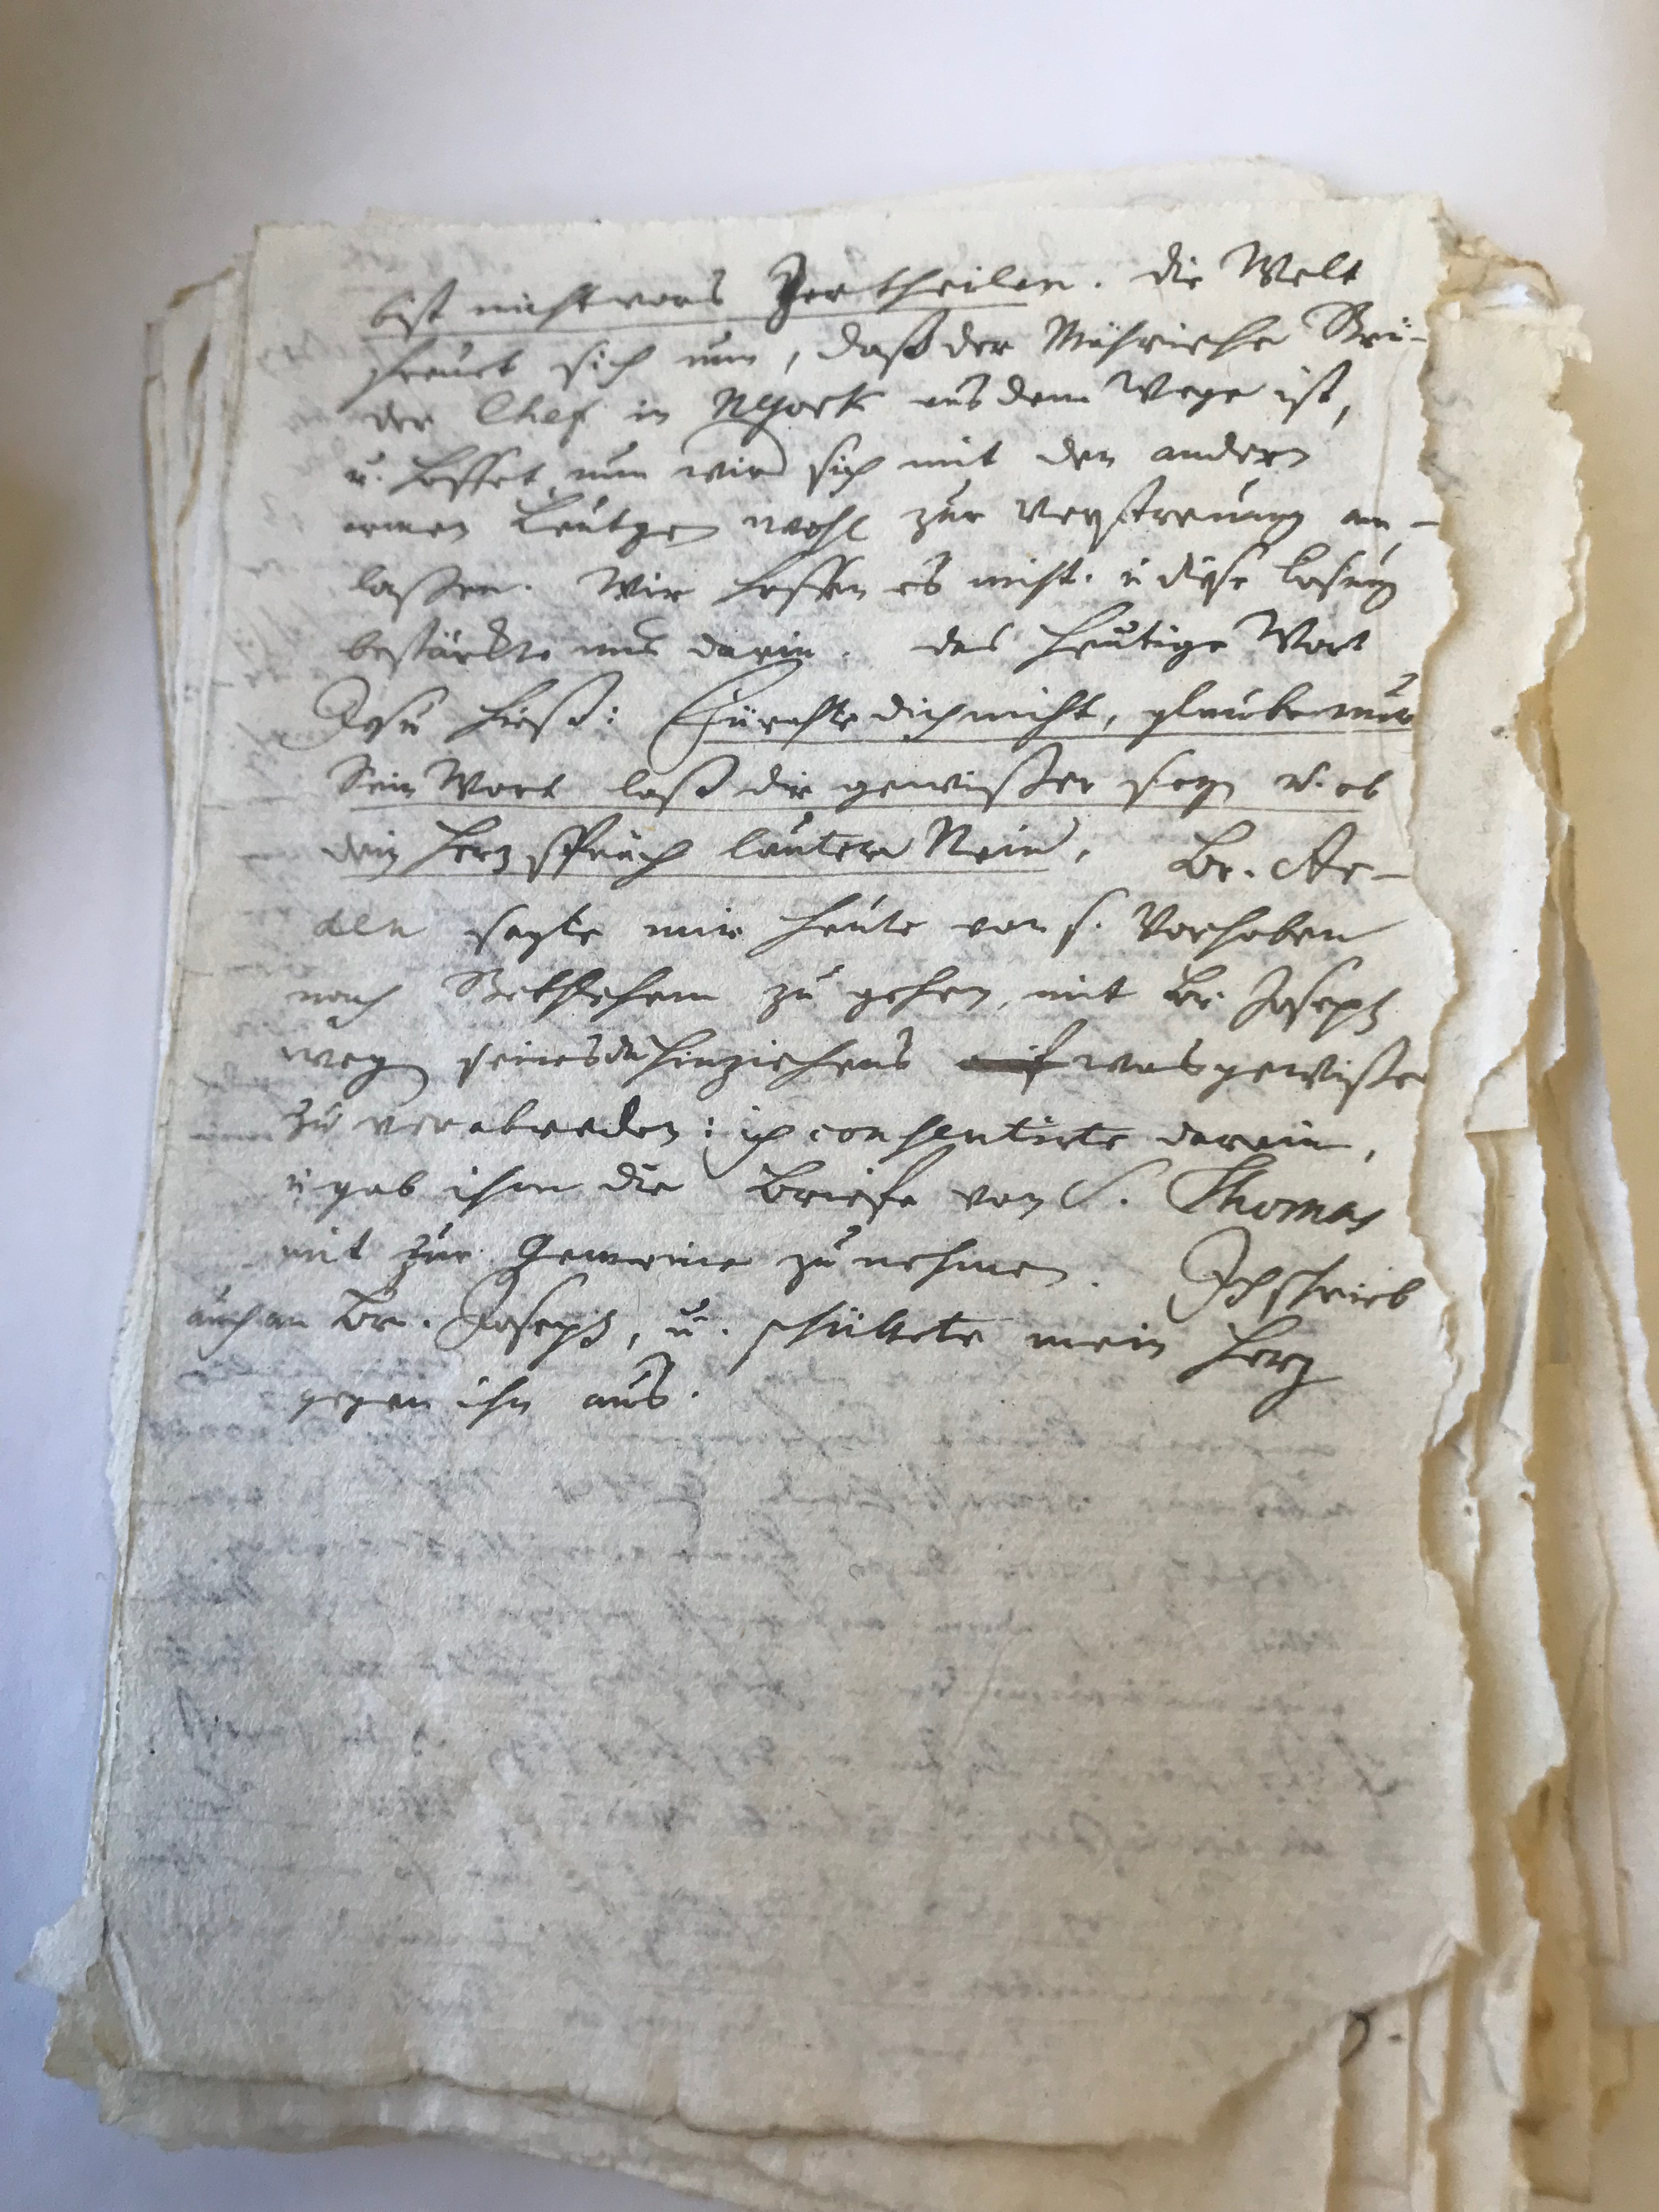 bist nicht vors Zertheilen. die Welt
freuet sich nun, daß der Mährische Brü-
der Chef in NYork aus dem Wege ist,
u. hoffet, nun wird sich mit den andern
armen Leutgen wohl zur Zerstreuung an-
laßen. Wir hoffen es nicht. u diese Losung
bestärckte uns darin. das heutige Wort
Jesu hieß: Fürchte dich nicht, glaube nur
Sein Wort laß dir gewißer seyn u. ob
dein Herz spräch lauter Nein. Br. Ar-
den sagte mir heute von s. Vorhaben
nach Bethlehem zu gehen, mit Br. Joseph
weg seines dahinziehens was gewißes
zu verabreden: ich consentirte darein,
u gab ihm die Briefe von S. Thomas
mit zur Gemeine zu nehmen. Ich schrieb
auch an Br. Joseph, u. schüttete mein Herz
gegen ihn aus.